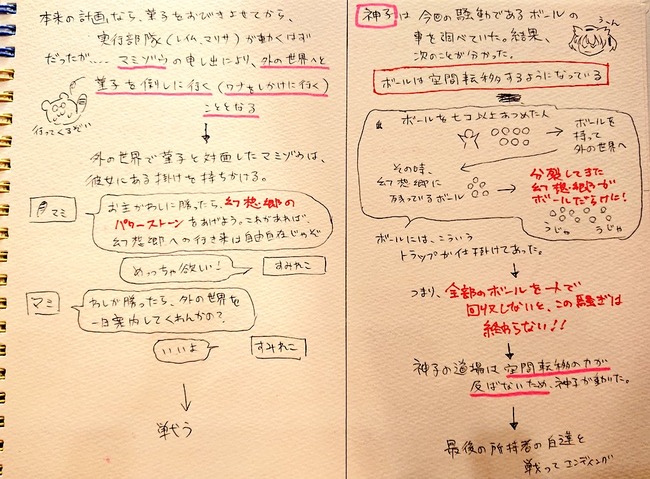 本来の計画なら、菫子をおびきよせてから、
実行部隊(レイム、マリサ)が動くはず
だったが‥‥ マミゾウの申し出により、外の世界へと
菫子を倒しに行く(ワナをしかけに行く)
こととなる
行ってくるぞい
外の世界で菫子と対面したマミゾウは、
彼女にある掛けを持ちかける。
マミ
お主がわしに勝ったら、幻想・郷の
パワーストーンをあげよう。これがあれば、
幻想郷への行き来は自由自在じゃのぞ
めっちゃ欲しい!
すみれこ
マミ
わしが勝ったら、外の世界を
一日案内してくれんかの?
いいよ
すみれこ
戦う
神子は今回の騒動であるボールの
事を調べていた。結果、
次のことが分かった。
う〜ん
ボールは空間転移するようになっている
ボールを七コ以上あつめた人
ボールを
持って
外の世界へ
その時、
幻想郷に
残っているボール
分裂してまた
幻想・郷が
ボールだらけに!
うじゃ うじゃ
ボールには、こういう
トラップが仕掛けてあった。
つまり、全部のボールを一人で
回収しないと、この騒ぎは
終わらない!!
神子の道場は空間転移の力が
及ばないため、神子が動いた。
最後の所持者の自達を
戦ってエンディング